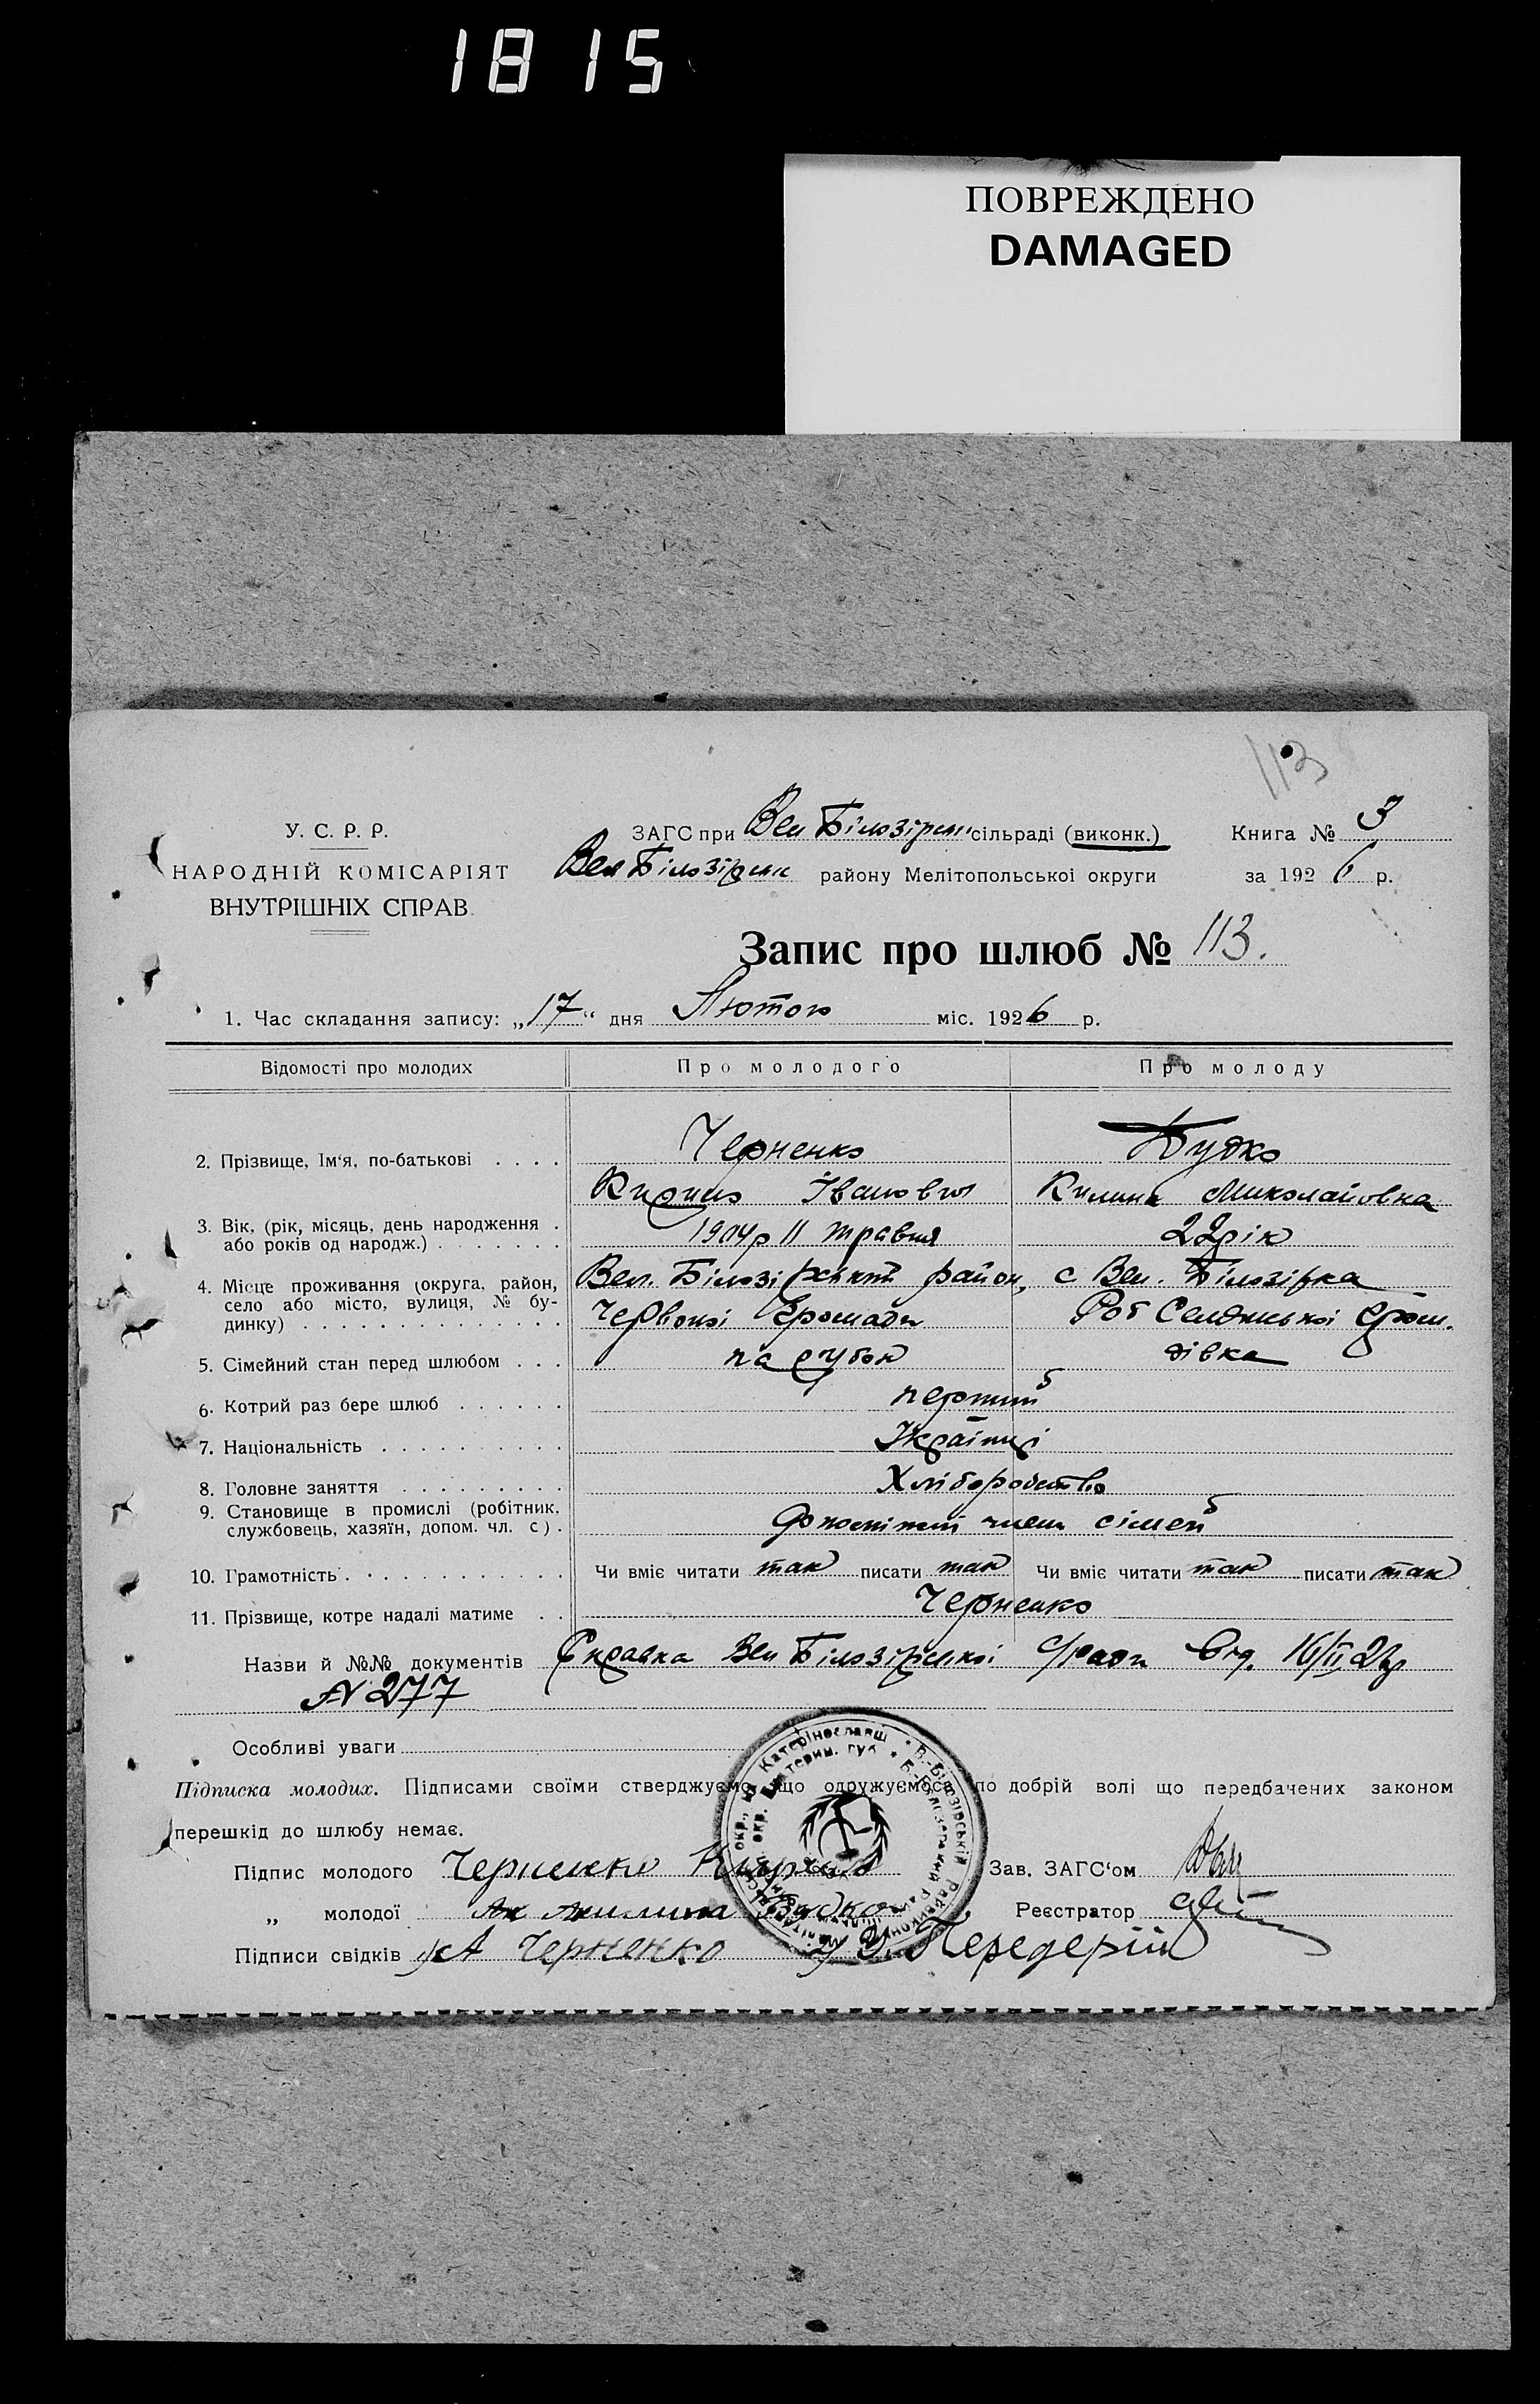 1815
ПОВРЕЖДЕНО
DAMAGED
113
У. С. Р. Р.
НАРОДНІЙ КОМІСАРІЯТ
ВНУТРІШНІХ СПРАВ
ЗАГС при Вел Білозірськ сільраді (виконк.) Книга № 3
Вел Білозірськ району Мелітопольської округи за 1926 р.
Запис про шлюб № 113.
1. Час складання запису: „17“ дня Лютого міс. 1926 р.
Відомості про молодих Про молодого Про молоду
2. Прізвище, Ім‘я, по-батькові . . . . Черненко Будко
Кирило Іванович Килина Миколайовна
3. Вік, (рік, місяць, день народження . 1904р 11 травня 22 рік
або років од народж.) . . . . . . .
4. Місце проживання (округа, район, Вел. Білозірський район, с Вел. Білозірка
село або місто, вулиця, № бу-
динку) . . . . . . . . . . . . . . Червоної Громади Роб Селянської гром.
5. Сімейний стан перед шлюбом . . . парубок дівка
6. Котрий раз бере шлюб . . . . . . перший
7. Національність . . . . . . . . . . Українці
8. Головне заняття . . . . . . . . . Хліборобство
9. Становище в промислі (робітник,
службовець, хазяїн, допом. чл. с) . член сімей
10. Грамотність . . . . . . . . . . . . Чи вміє читати так писати так Чи вміє читати так писати так
11. Прізвище, котре надалі матиме . . Черненко
Назви й №№ документів Справка Вел Білозірської с/ради від 16/II 26р
№ 277
Особливі уваги
Підписка молодих. Підписами своїми стверджуємо, що одружуємось по добрій волі що передбачених законом
перешкід до шлюбу немає.
Підпис молодого Черненко Кирило Зав. ЗАГС‘ом
„ молодої Акилина Будко Реєстратор
Підписи свідків 1) А Черненко 2) Передерій